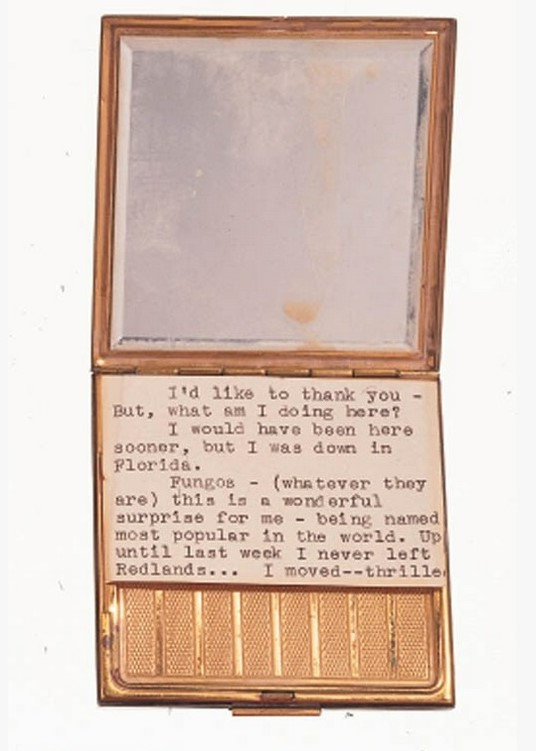 I'd like to thank you -
But, what am I doing here?
I would have been here
sooner, but I was down in
Florida.
Fungos - (whatever they
are) this is a wonderful
surprise for me - being named
most popular in the world. Up
until last week I never left
Redlands... I moved--thrille